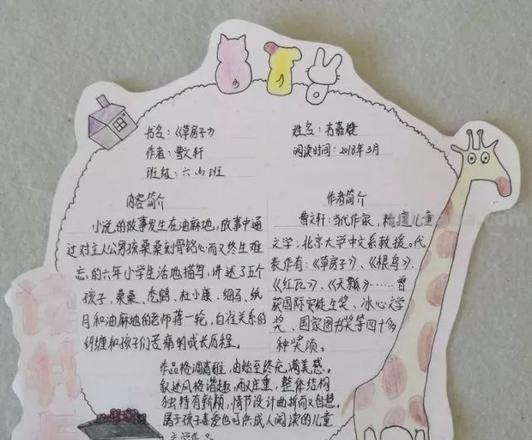 书名：《草房子》
作者：曹文轩
班级：六（4）班
姓名：
阅读时间：2018年3月
内容简介
小说的故事发生在油麻地，故事中通
过对主人公男孩桑桑刻骨铭心而又终生难
忘的六年小学生活地描写，讲述了五个
孩子，桑桑、秃鹤、杜小康、细马、纸
月和油麻地的老师蒋一轮，白雀关系的
纠缠和孩子们苦痛的成长历程。
作者简介
曹文轩：当代作家，精擅儿童
文学；北京大学中文系教授。代
表作有：《草房子》、《根鸟》、
《红瓦》、《天瓢》……曾
获国际安徒生奖、冰心文学
奖、国家图书奖等四十多
种奖项。
作品格调高雅，由始至终充满美感。
叙述风格谐趣而又庄重，整体结构
独特而新颖，情节设计曲折而又智慧。
属于孩子喜爱也可供成人阅读的儿童
文学作品。